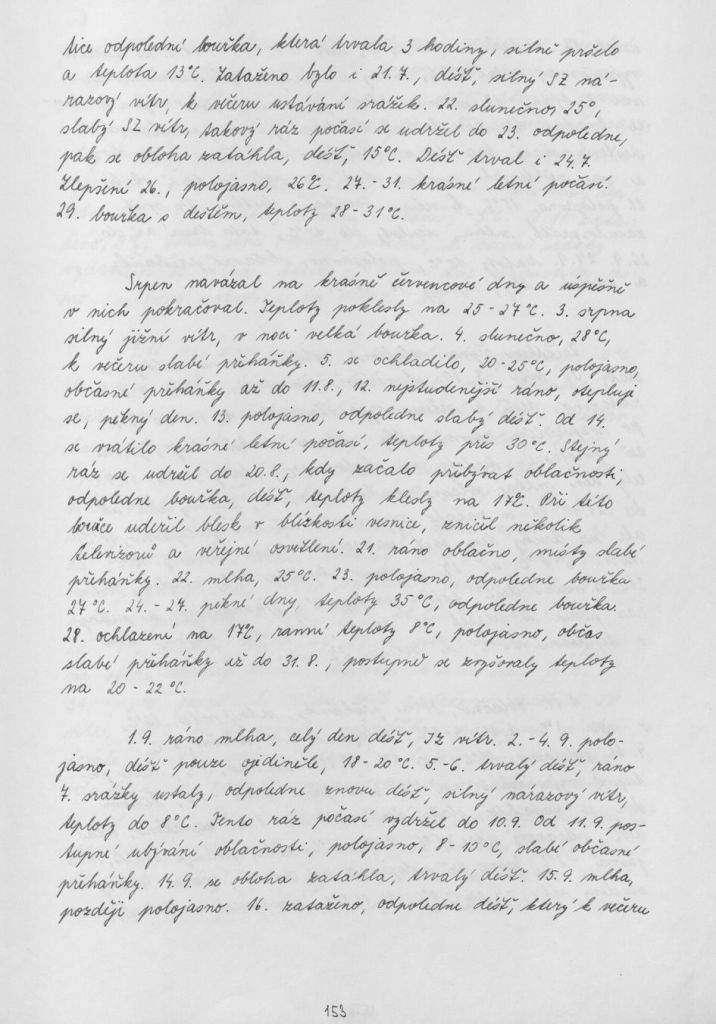 tice odpolední bouřka, která trvala 3 hodiny, silně pršelo
a teplota 13°C. Zataženo bylo i 21.7., déšť, silný SZ ná-
razový vítr, k večeru ustávání srážek. 22. slunečno 25°,
slabý SZ vítr, takový ráz počasí se udržel do 23. odpoledne,
pak se obloha zatáhla, déšť, 15°C. Déšť trval i 24.7.
Zlepšení 26., polojasno, 26°C. 27.-31. krásné letní počasí.
29. bouřka s deštěm, teploty 28-31°C.
Srpen navázal na krásné červencové dny a úspěšně
v nich pokračoval. Teploty poklesly na 25-27°C. 3. srpna
silný jižní vítr, v noci velká bouřka. 4. slunečno, 28°C,
k večeru slabé přeháňky. 5. se ochladilo, 20-25°C, polojasno,
občasné přeháňky až do 11.8., 12. nejstudenější ráno, otepluje
se, pěkný den. 13. polojasno, odpoledne slabý déšť. Od 14.
se vrátilo krásné letní počasí, teploty přes 30°C. Stejný
ráz se udržel do 20.8., kdy začalo přibývat oblačnosti,
odpoledne bouřka, déšť, teploty klesly na 17°C. Při této
bouřce udeřil blesk v blízkosti vesnice, zničil několik
televizorů a veřejné osvětlení. 21. ráno oblačno, místy slabé
přeháňky. 22. mlha, 25°C. 23. polojasno, odpoledne bouřka
27°C. 24.-27. pěkné dny, teploty 35°C, odpoledne bouřka.
28. ochlazení na 17°C, ranní teploty 8°C, polojasno, občas
slabé přeháňky až do 31.8., postupně se zvyšovaly teploty
na 20-22°C.
1.9. ráno mlha, celý den déšť, JZ vítr. 2.-4. 9. polo-
jasno, déšť pouze ojediněle, 18-20°C. 5.-6. trvalý déšť, ráno
7. srážky ustaly, odpoledne znovu déšť, silný nárazový vítr,
teploty do 8°C. Tento ráz počasí vydržel do 10.9. Od 11.9. pos-
tupné ubývání oblačnosti, polojasno, 8-10°C, slabé občasné
přeháňky. 14.9. se obloha zatáhla, trvalý déšť. 15.9. mlha,
později polojasno. 16. zataženo, odpoledne déšť, který k večeru
153